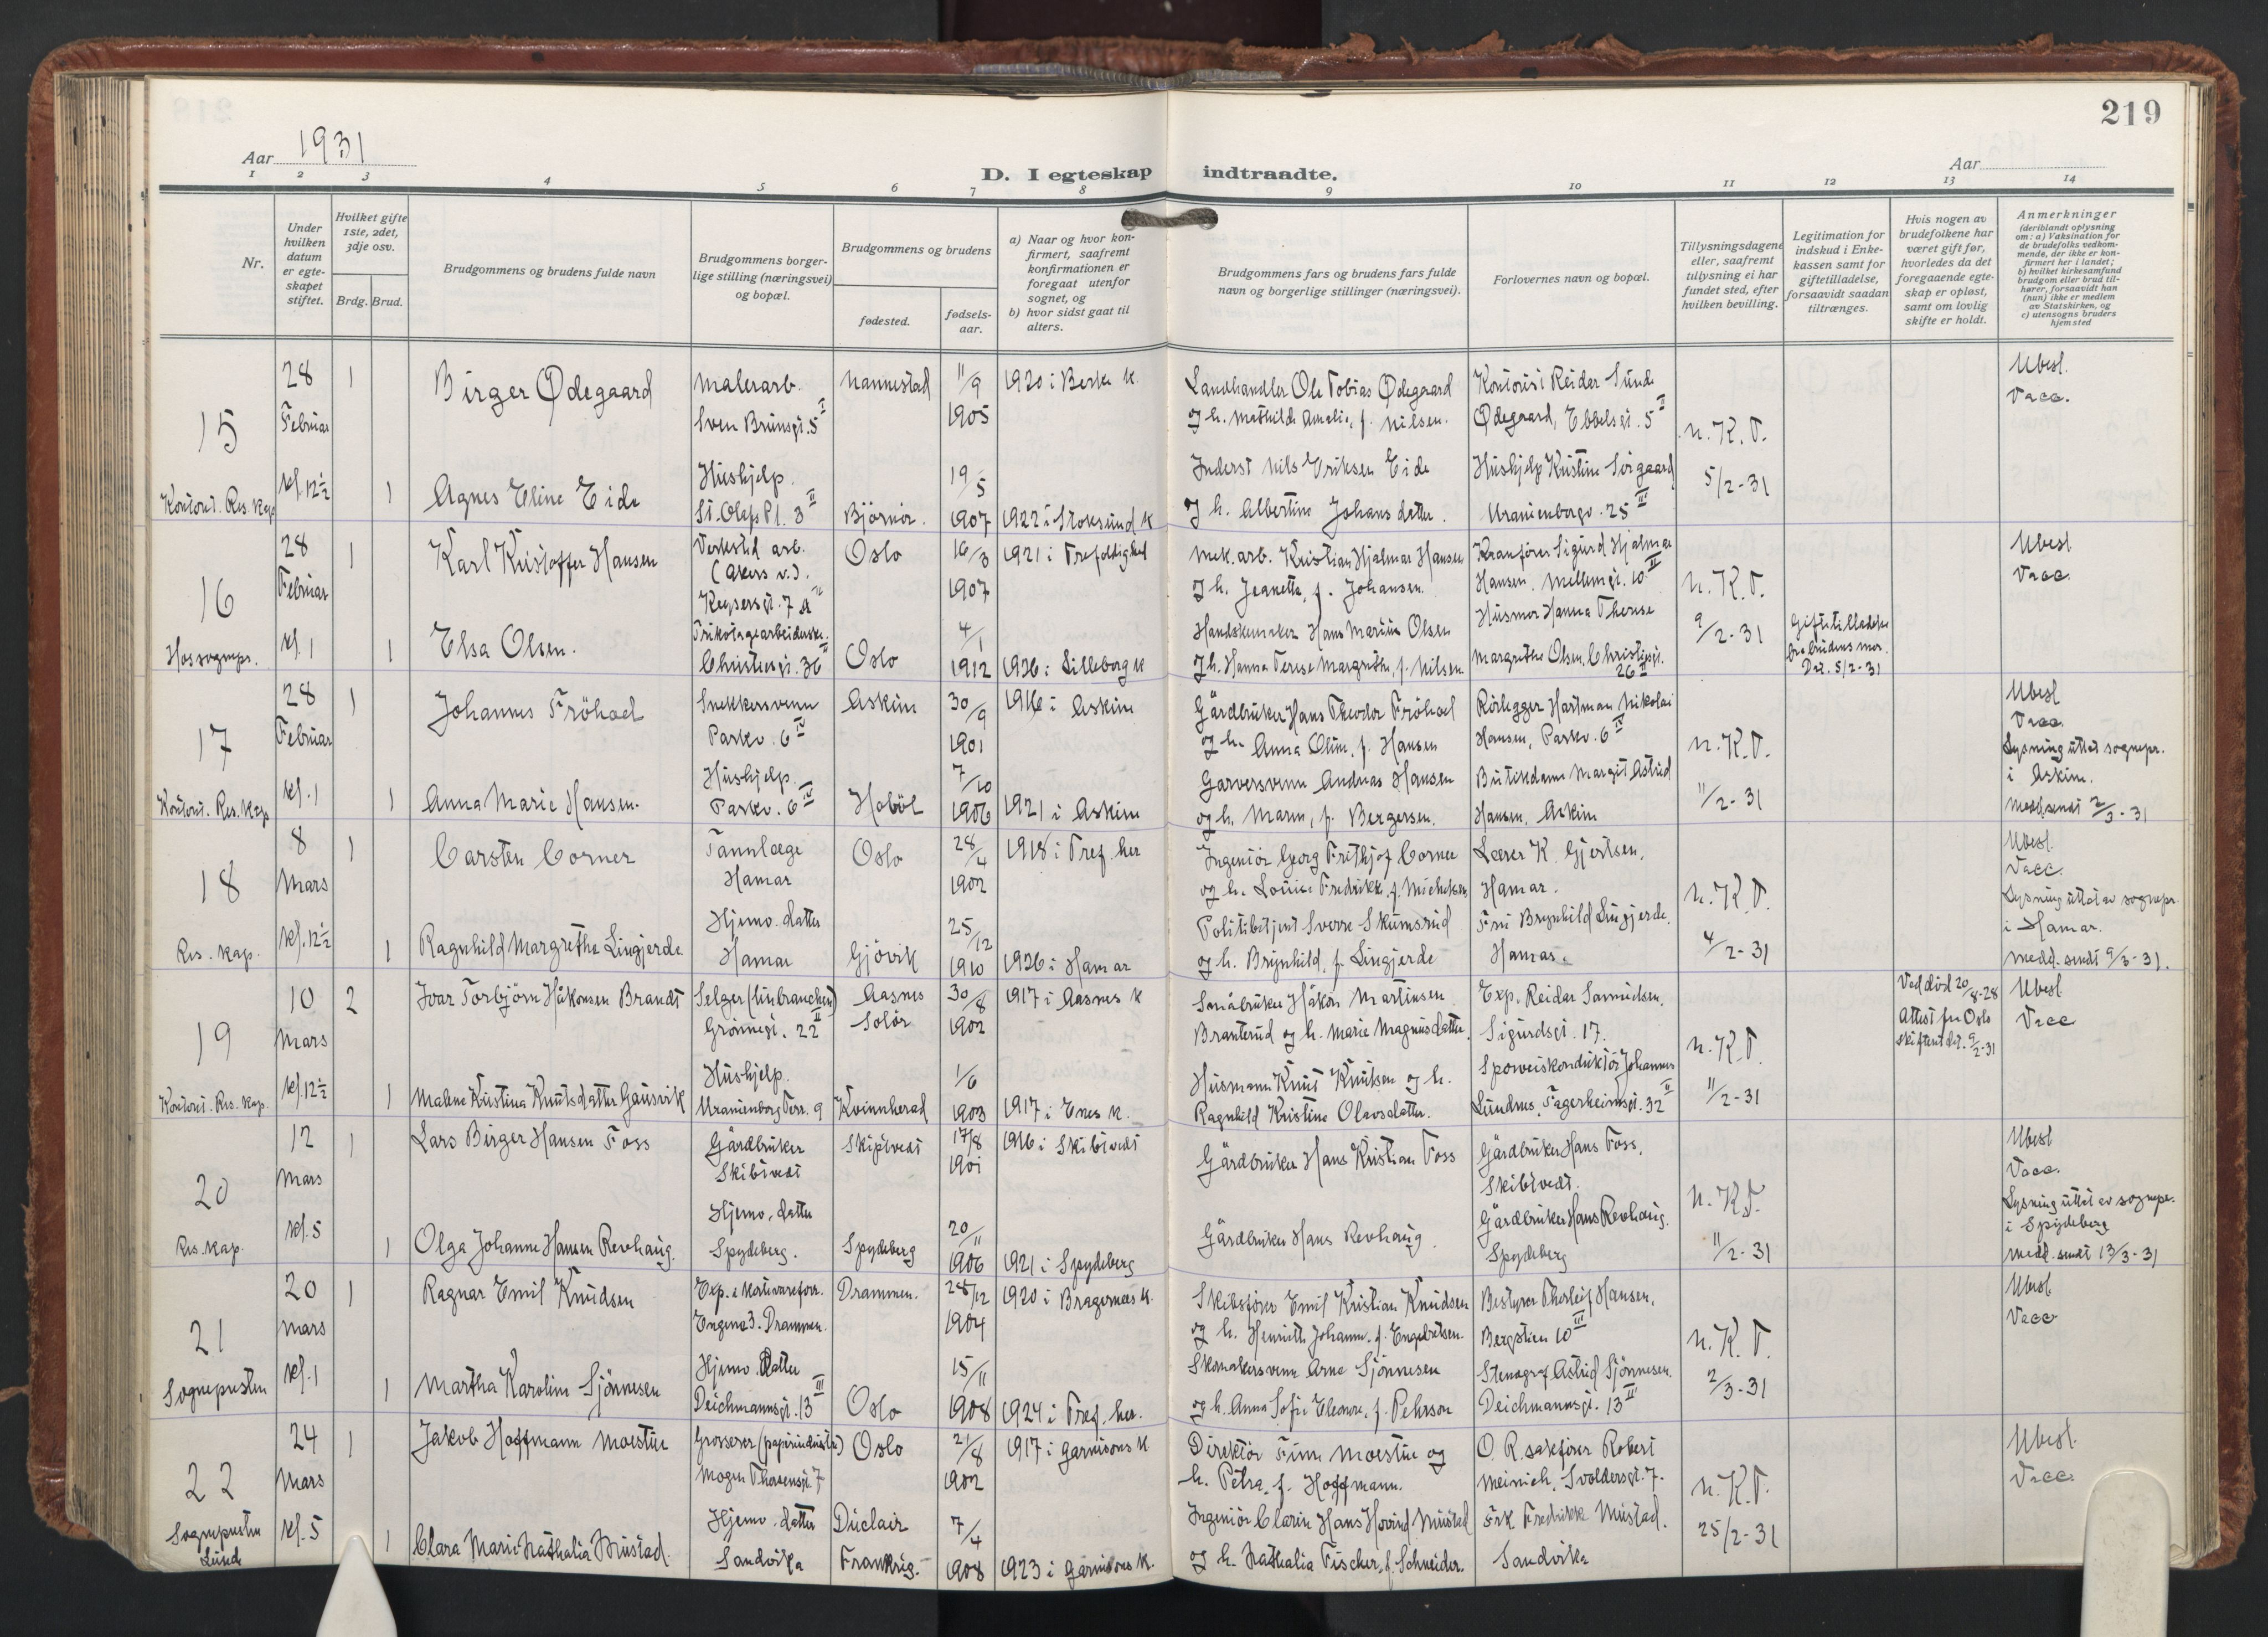 219
Aar 1931
Aar
D. I egteskap indtraadte.
1 2 3 4 5 6 7 8 9 10 11 12 13 14
Nr.
Under hvilken datum er egte-skapet stiftet.
Hvilket gifte 1ste, 2det, 3dje osv.
Brdg. Brud.
Brudgommens og brudens fulde navn
Brudgommens borger-lige stilling (næringsvei) og bopæl.
Brudgommens og brudens
fødested.
fødsels-aar.
a) Naar og hvor kon-firmert, saafremt konfirmationen er foregaat utenfor sognet, og
b) hvor sidst gaat til alters.
Brudgommens fars og brudens fars fulde navn og borgerlige stillinger (næringsvei).
Forlovernes navn og bopæl.
Tillysningsdagene eller, saafremt tillysning ei har fundet sted, efter hvilken bevilling.
Legitimation for indskud i Enke-kassen samt for giftetilladelse, forsaavidt saadan tiltrænges.
Hvis nogen av brudefolkene har været gift før, hvorledes da det foregaaende egte-skap er opløst, samt om lovlig skifte er holdt.
Anmerkninger (deriblandt oplysning om: a) Vaksination for de brudefolks vedkom-mende, der ikke er kon-firmert her i landet; b) hvilket kirkesamfund brudgom eller brud til-hører, forsaavidt han (hun) ikke er medlem av Statskirken, og c) utensogns bruders hjemsted
15 28 Februar kl. 12½ Kontoret. Res. Kap
1 Birger Ødegaard Malerarb. Sven Brunsgt. 5 I Nannestad 11/9 1905 1920 i Beske k. Landhandler Ole Tobias Ødegaard og h. Mathilde Amalie, f. Nilsen. Kontorist Reidar Sunde Ødegaard, Ebbelsgt. 5 II n. K. T. 5/2-31 Ubesl. Vacc.
1 Agnes Eline Eide Hushjelp. St. Olafs Pl. 3 II Björnör. 19/5 1907 1922 i Stoksund k Inderst Nils Eriksen Eide og h. Albertine Johansdatter. Hushjelp Kristine Sörgaard Uranienborgv. 25 III
16 28 Februar kl. 1 Hos sognepr.
1 Karl Kristoffer Hansen Verksted arb. (Akers v.). Keysersgt. 7 a Oslo 16/3 1907 1921 i Trefoldighed Mek. arb. Kristian Hjalmar Hansen og h. Jeanette, f. Johansen. Kranförer Sigurd Hjalmar Hansen. Mellemgt. 10 II n. K. T. 9/2-31 Ubesl Vacc.
1 Elsa Olsen. Trikotagearbeiderske. Christiesgt. 36 II Oslo 4/1 1912 1926 i Lilleborg k Handskemaker Hans Marius Olsen og h. Hanna Terese Margrethe, f. Nilsen Husmor Hanna Therese Margrethe Olsen, Christiesgt. 26 II Giftetilladelse fra brudens mor. Dat. 5/2-31
17 28 Februar kl. 1 Kontoret. Res. Kap
1 Johannes Fröhael Snekkersvenn Parkv. 6 IV Askim 30/9 1901 1916 i Askim Gårdbruker Hans Theodor Fröhael og h. Anna Oline, f. Hansen Rörlegger Hartman Nikolai Hansen, Parkv. 6 IV n. K. T. 11/2-31 Ubesl Vacc. Lysning uttat sognepr. i Askim. Medd. sendt 2/3-31
1 Anna Marie Hansen. Hushjelp. Parkv. 6 IV Hoböl 7/10 1906 1921 i Askim Garversvenn Andreas Hansen og h. Maren, f. Bergersen. Butikdame Margit Astrid Hansen, Askim
18 8 Mars kl. 12½ Res. kap.
1 Carsten Corner Tannlæge Hamar Oslo 28/4 1902 1918 i Tref. her Ingeniör Georg Frithjof Corner og h. Louise Fredrikke, f. Michelsen Lærer K. Gjertsen, Hamar. n. K. T. 4/2-31 Ubesl. Vacc. Lysning uttat av sognepr. i Hamar. Medd. sendt 9/3-31.
1 Ragnhild Margrethe Lingjerde Hjemv. datter Hamar Gjövik 25/12 1910 1926 i Hamar Politibetjent Sverre Skumsrud og h. Brynhild, f. Lingjerde Fru Brynhild Lingjerde. Hamar.
19 10 Mars kl. 12½ Kontoret. Res. kap.
2 Ivar Torbjörn Håkonsen Brandt Selger (linbranchen) Grönnegt. 22 II Aasnes Solör 30/8 1902 1917 i Aasnes k Småbruker Håkon Martinsen Branterud og h. Marie Magnusdatter. Exp. Reidar Samuelsen, Sigurdsgt. 17. n. K. T. 11/2-31 Ved död 20/8-28 Attest fra Oslo skifterett dat. 9/2-31 Ubesl Vacc
1 Malene Kristina Knutsdatter Gausvik Hushjelp. Uranienborg Terr. 9 Kvinnherad 1/6 1903 1917 i Enes k. Husmann Knut Knutsen og h. Ragnhild Kristine Olavsdatter. Sporveiskonduktör Johannes Lundnes, Fagerheimsgt. 32 II
20 12 Mars kl. 5 Res. kap.
1 Lars Birger Hansen Foss Gårdbruker Skibtvedt Skiptvedt 17/8 1901 1916 i Skibtvedt Gårdbruker Hans Kristian Foss Gårdbruker Hans Foss, Skibtvedt. n. K. T. 11/2-31 Ubesl Vacc. Lysning uttat av sognepr. i Spydeberg medd. sendt 13/3-31
1 Olga Johanne Hansen Revhaug. Hjemv. datter Spydeberg. Spydeberg 20/11 1906 1921 i Spydeberg Gårdbruker Hans Revhaug. Gårdbruker Hans Revhaug. Spydeberg
21 20 Mars kl. 1 Sognepresten
1 Ragnar Emil Knudsen Exp. i kortevareforr. Engene 3. Drammen. Drammen. 28/12 1904 1920 i Bragernes k. Skibsförer Emil Kristian Knudsen og h. Henriette Johanne, f. Engebretsen. Bestyrer Thorleif Hansen, Bergstien 10 III n. K. T. 2/3-31 Ubesl. Vacc
1 Martha Karoline Sjönnesen Hjemv. Datter Deichmannsgt. 13 III Oslo 15/11 1908 1924 i Tref. her. Skomakersvenn Arne Sjönnesen og h. Anna Sofie Eleonore, f. Pehrson Stenograf Astrid Sjönnesen. Deichmannsgt. 13 II
22 24 Mars kl. 5 Sognepresten Lunde
1 Jakob Hoffmann Moestue Grosserer (papirindustri) Mogens Thorsensgt. 7 Oslo 21/8 1902 1917 i Garnisons k Direktör Finn Moestue og h. Petra, f. Hoffmann. O. R. sakförer Robert Meinich, Svoldersgt. 7. n. K. T. 25/2-31 Ubesl. Vacc.
1 Clara Marie Nathalia Mustad. Hjemv. datter Sandvika Duclair Frankrig. 7/4 1908 1923 i Garnisons k. Ingeniör Clarin Hans Hovind Mustad og h. Nathalia Fischer, f. Schneider. Frk Fredrikke Mustad. Sandvika